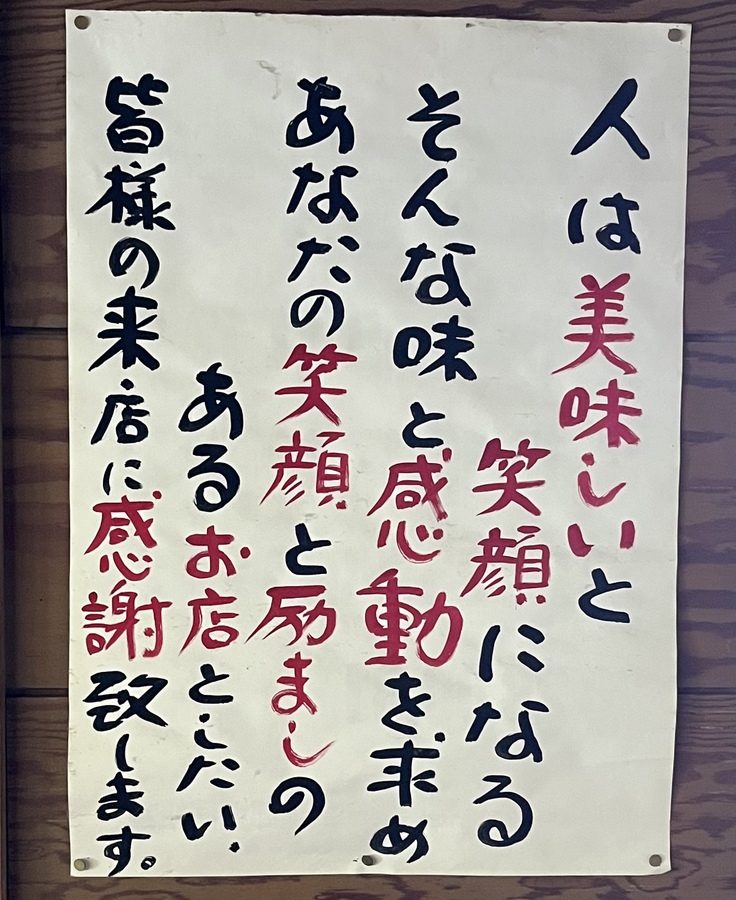 人は美味しいと
笑顔になる
そんな味と感動を求め
あなたの笑顔と励ましの
あるお店としたい.
皆様の来店に感謝致します。